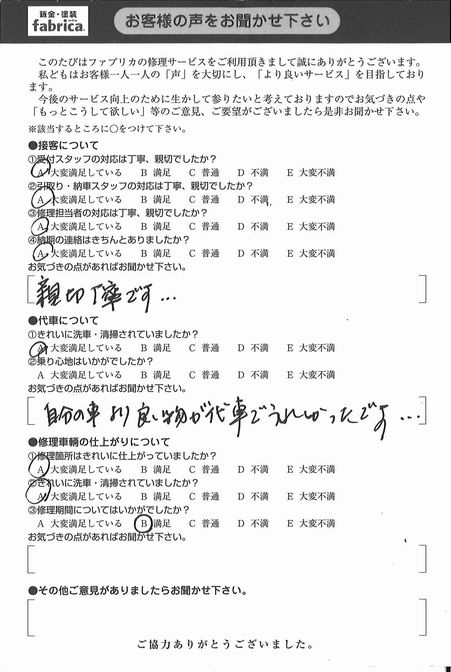 鈑金・塗装
fabrica.
お客様の声をお聞かせ下さい
このたびはファブリカの修理サービスをご利用頂きまして誠にありがとうございます。
私どもはお客様一人一人の「声」を大切にし、「より良いサービス」を目指しており
ます。
今後のサービス向上のために生かして参りたいと考えておりますのでお気づきの点や
「もっとこうして欲しい」等のご意見、ご要望がございましたら是非お聞かせ下さい。
※該当するところに○をつけて下さい。
●接客について
①受付スタッフの対応は丁寧、親切でしたか?
A 大変満足している B 満足 C 普通 D 不満 E 大変不満
②引取り・納車スタッフの対応は丁寧、親切でしたか?
A 大変満足している B 満足 C 普通 D 不満 E 大変不満
③修理担当者の対応は丁寧、親切でしたか?
A 大変満足している B 満足 C 普通 D 不満 E 大変不満
④納期の連絡はきちんとありましたか?
A 大変満足している B 満足 C 普通 D 不満 E 大変不満
お気づきの点があればお聞かせ下さい。
親切丁寧です...
●代車について
①きれいに洗車・清掃されていましたか?
A 大変満足している B 満足 C 普通 D 不満 E 大変不満
②乗り心地はいかがでしたか?
A 大変満足している B 満足 C 普通 D 不満 E 大変不満
お気づきの点があればお聞かせ下さい。
自分の車より良い物が代車でうれしかったです...
●修理車輌の仕上がりについて
①修理箇所はきれいに仕上がっていましたか?
A 大変満足している B 満足 C 普通 D 不満 E 大変不満
②きれいに洗車・清掃されていましたか?
A 大変満足している B 満足 C 普通 D 不満 E 大変不満
③修理期間についてはいかがでしたか?
A 大変満足している B 満足 C 普通 D 不満 E 大変不満
お気づきの点があればお聞かせ下さい。
●その他ご意見がありましたらお聞かせ下さい。
ご協力ありがとうございました。